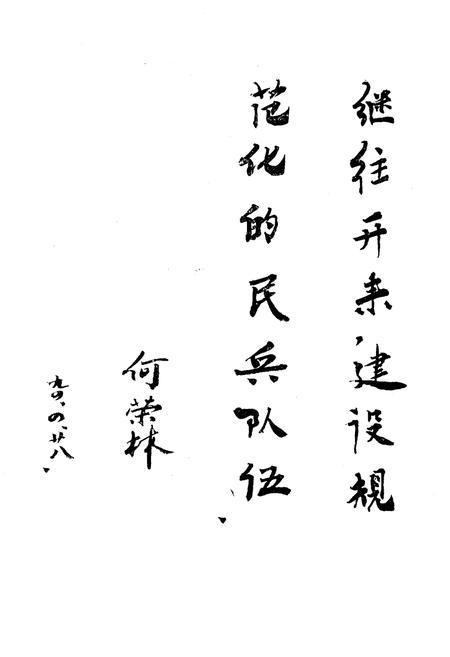 继往开来,建设规
范化的民兵队伍
何荣林
九〇、四、廿八、